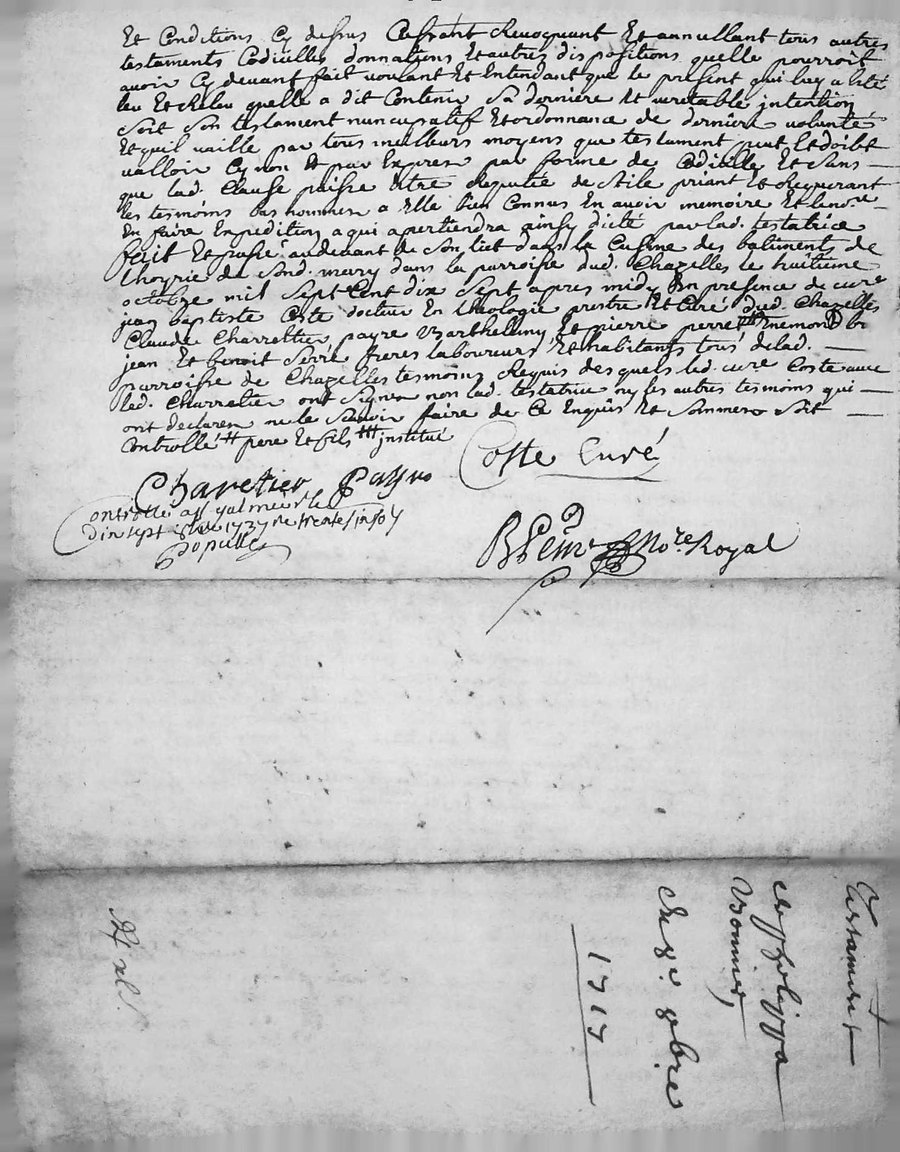 Et Conditions Cy dessus Cassant Revoquant Et annullant tous autres
testaments Codicilles donnations Et autres dispositions quelle pourroit
avoir Cy devant fait voulant Et Entendant que le present qui luy a esté
leu Et Releu quelle a dit Contenir Sa derniere Et veritable intention
Soit Son testament nuncupatif Et ordonnance de derniere volonté
Et quil vaille par tous meilleurs moyens que testament peut Et doibt
valloir Cy non Et par Expres par forme de Codicille Et Sans
que lad. Clause puisse Etre Reputée de Stile priant Et Requerant
les tesmoins bas nommes a Elle bien Connus En avoir memoire Et le nore
En faire Expedition a qui apertiendra ainsy dicté par lad. testatrice
fait Et passé au devant de Son lict dans la Cuisine des batiment de
de Sond. mary dans la parroisse dud. Chazelles le huitieme
octobre mil Sept Cent dix Sept apres midy En presence de
jean baptiste Coste docteur En theologie prestre Et Curé dud. Chazelles
Claude Charrettier payre Barthellemy Et pierre perret
jean Et benoit Serre freres laboureurs Et habitants tous delad.
parroisse de Chazelles tesmoins Requis desquels led. Curé Coste avec
led. Charretier ont Signé non lad. testatrice ny les autres tesmoins qui
ont declaren ne le Scavoir faire de Ce Enquis Et Sommes Soit
Controllé ++ pere Et fils +++ institué
Coste Curé
Charetier Payre
Controllé a St galmier le
dix sept
Nore Royal
Testament
Bonnier
Du 8e 8bre
1717